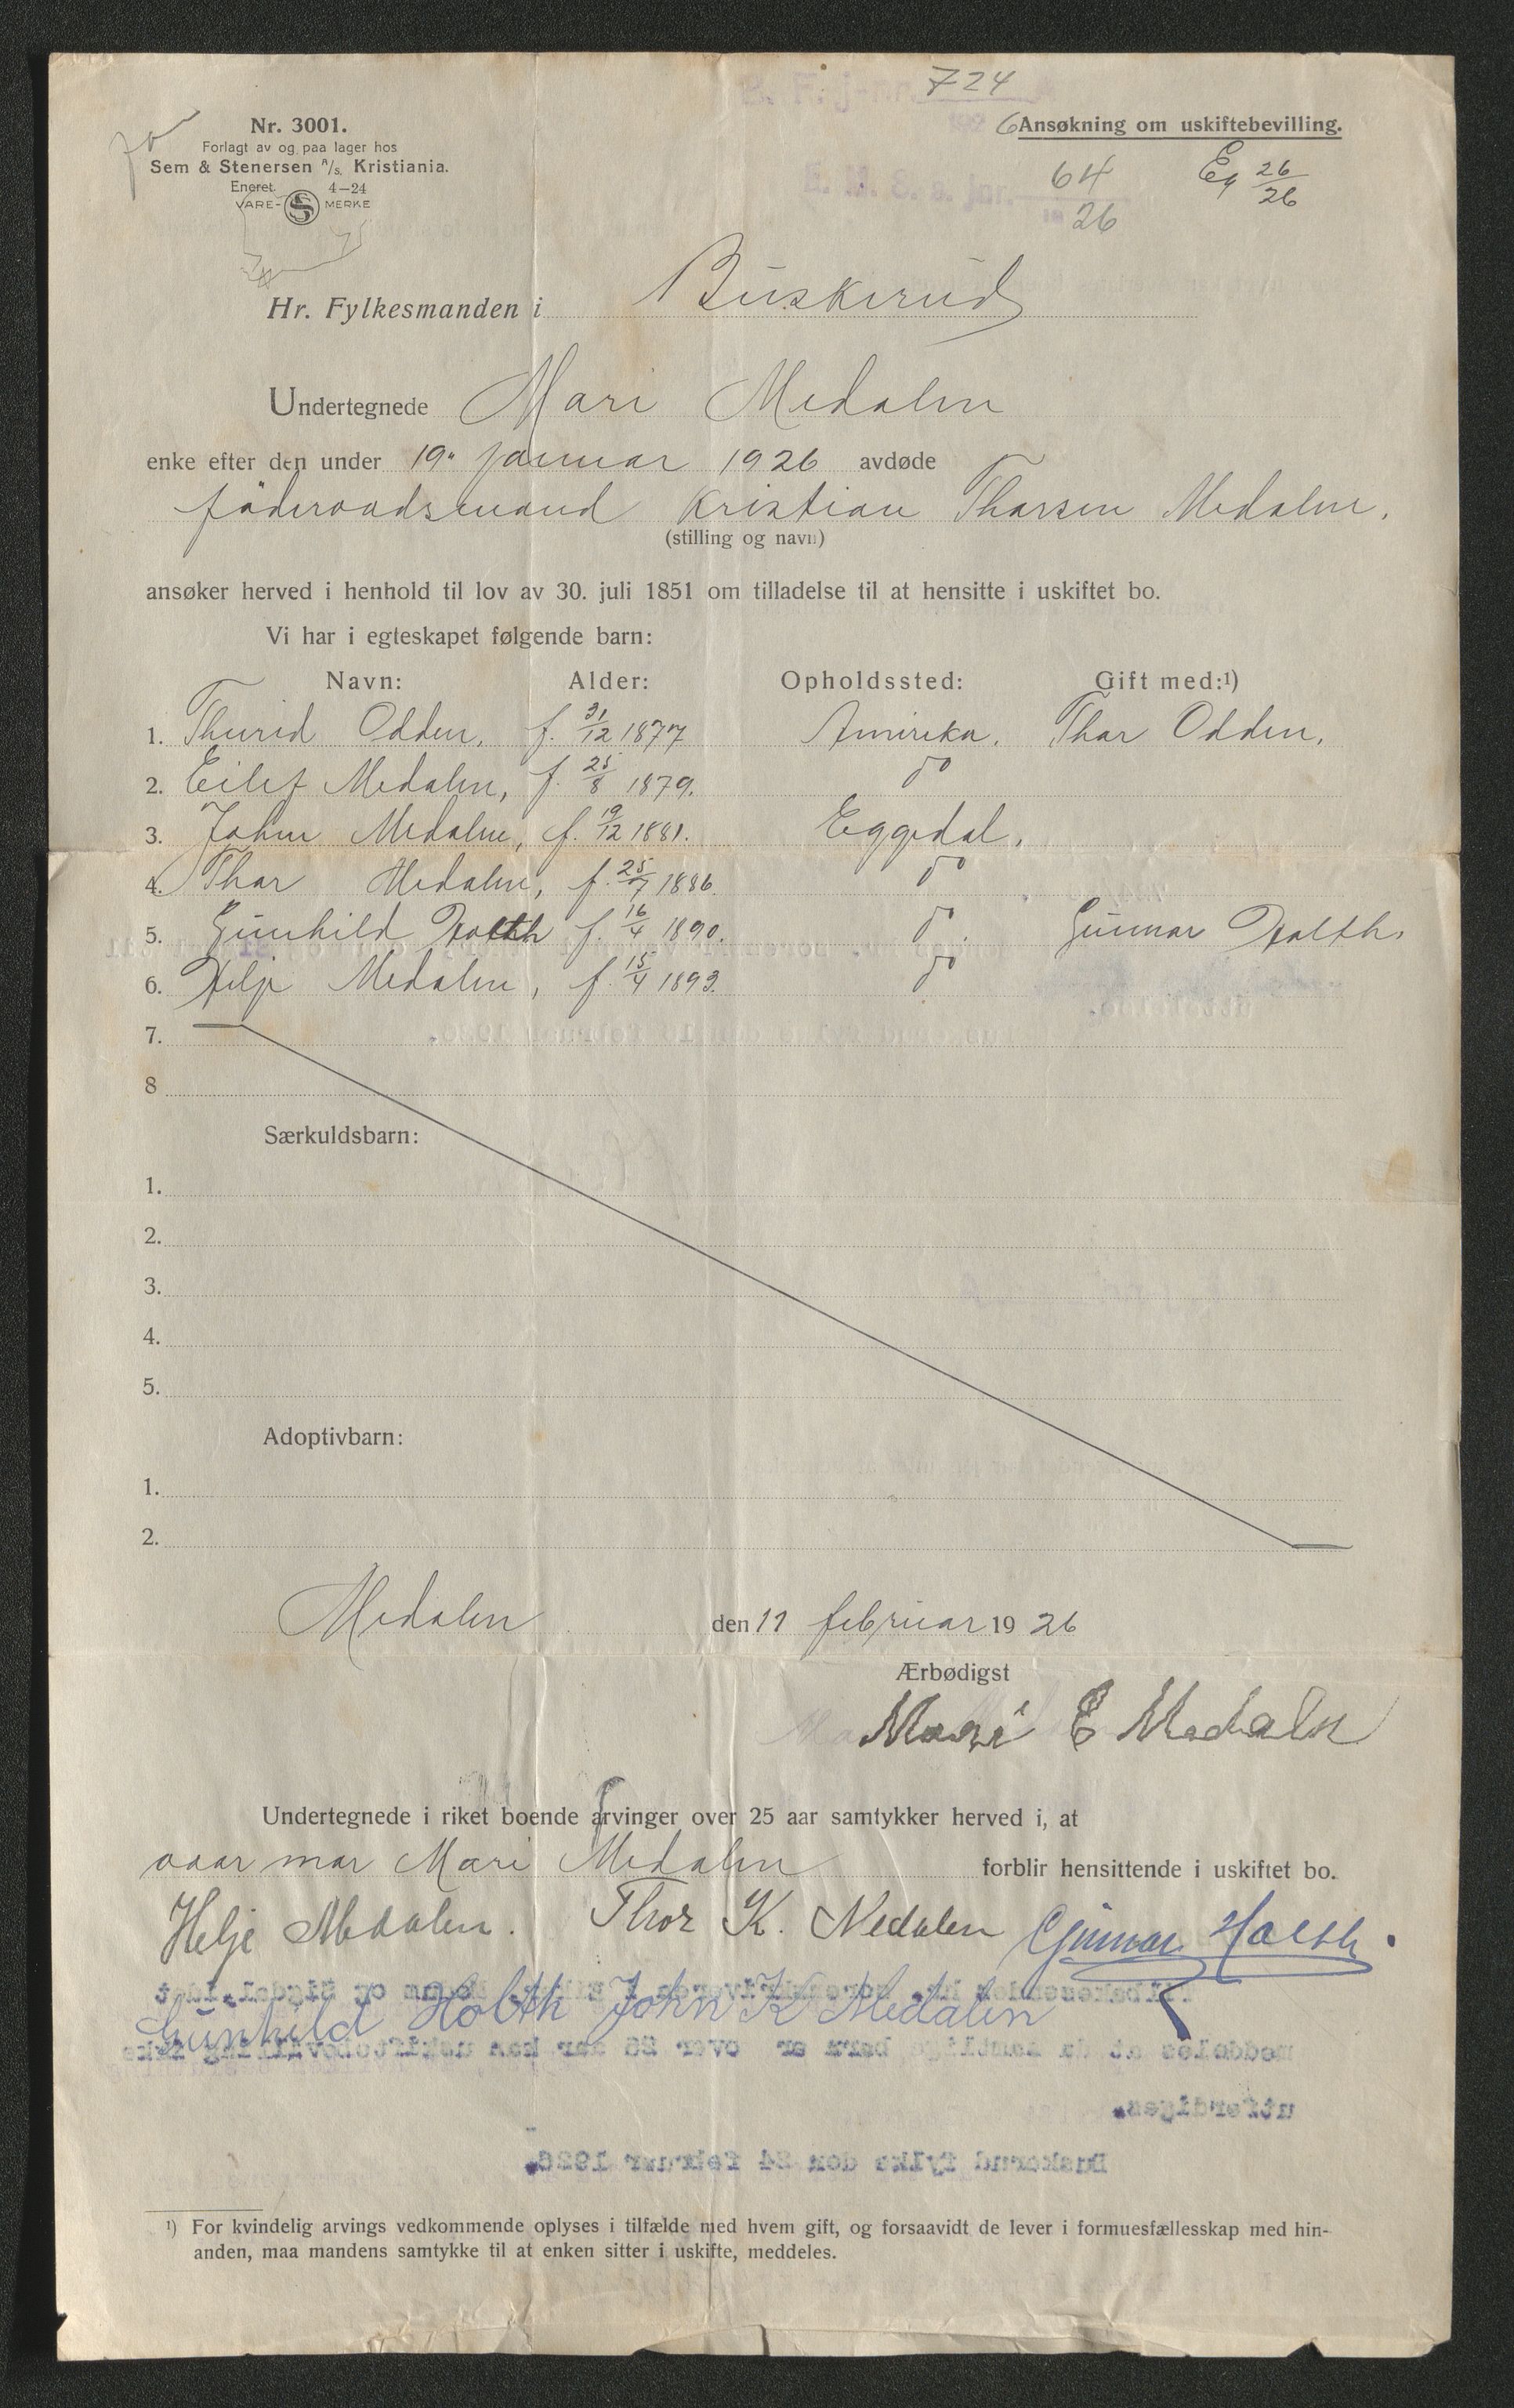 724
Nr. 3001.
Forlagt av og paa lager hos
Sem & Stenersen A/s. Kristiania.
Eneret. 4–24
VARE- S MERKE
6 Ansøkning om uskiftebevilling.
E. M. S. s. jnr. 64
26
Eg 26/26
Hr. Fylkesmanden i Buskerud
Undertegnede Mari Medalen
enke efter den under 19. januar 1926 avdøde
föderaadsmand Kristian Tharsen Medalen.
(stilling og navn)
ansøker herved i henhold til lov av 30. juli 1851 om tilladelse til at hensitte i uskiftet bo.
Vi har i egteskapet følgende barn:
Navn: Alder: Opholdssted: Gift med:¹)
1. Thurid Odden, f. 31/12 1877 Amerika. Thar Odden.
2. Eilef Medalen, f. 25/8 1879. do
3. John Medalen, f. 19/12 1881. Eggedal.
4. Thar Medalen, f. 25/7 1886. do
5. Gunhild Holth f. 16/4 1890. do. Gunnar Holth.
6. Helje Medalen, f. 15/4 1893. do
7.
8
Særkuldsbarn:
1.
2.
3.
4.
5.
Adoptivbarn:
1.
2.
Medalen den 11 februar 1926
Ærbødigst
Mari E Medalen
Undertegnede i riket boende arvinger over 25 aar samtykker herved i, at
vaar mor Mari Medalen forblir hensittende i uskiftet bo.
Helje Medalen. Thor K. Medalen Gunnar Holth.
Gunhild Holth John K Medalen
Tilbakesendes hr. sorenskriveren i Eiker, Modum og Sigdal, idet
meddeles at da samtlige barn er over 25 aar kan uskiftebevilling ikke
utferdiges.
Buskerud fylke den 24 februar 1926.
¹) For kvindelig arvings vedkommende oplyses i tilfælde med hvem gift, og forsaavidt de lever i formuesfællesskap med hin-
anden, maa mandens samtykke til at enken sitter i uskifte, meddeles.